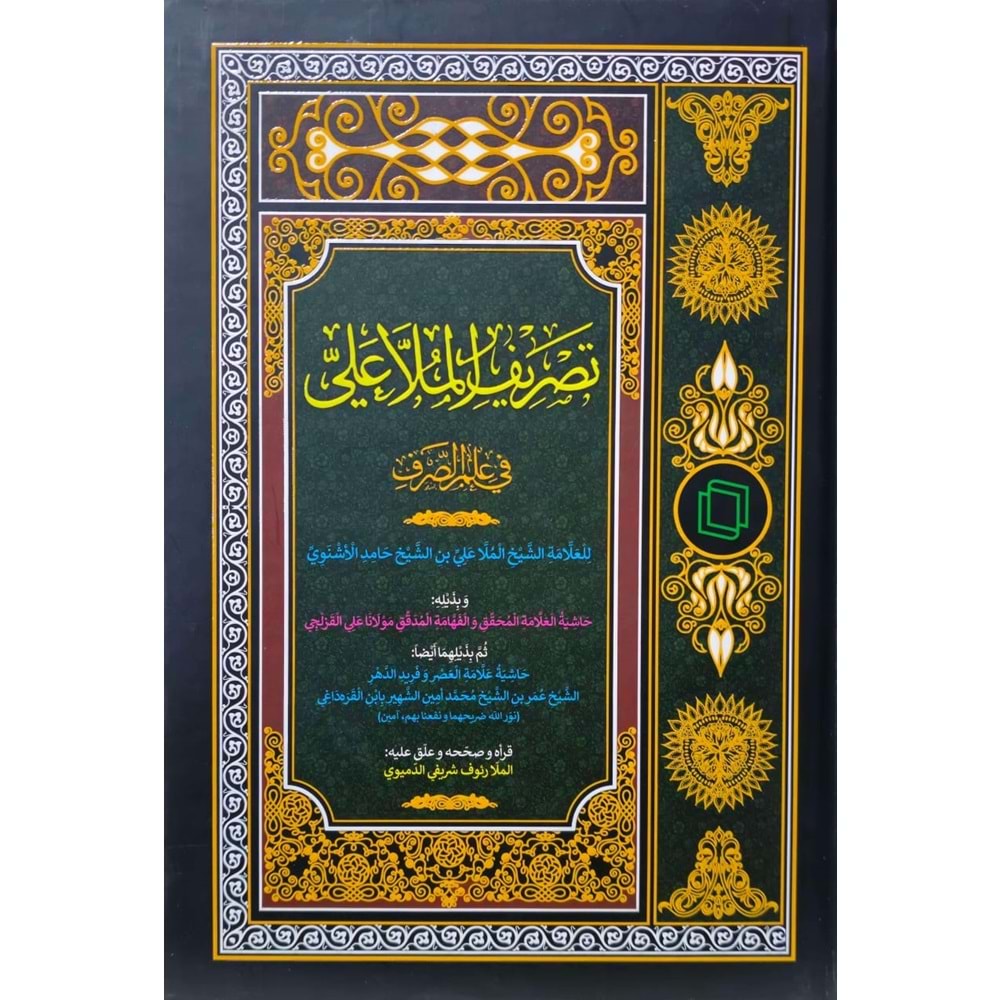 تَصْرِيفُ الْمُلَّا عَلِيّ
فِي عِلْمِ الصَّرْفِ
لِلْعَلَّامَةِ الشَّيْخِ الْمُلَّا عَلِيِّ بنِ الشَّيْخِ حَامِدِ الْأُشْنَوِيِّ
وَ بِذَيْلِهِ:
حَاشِيَةُ الْعَلَّامَةِ الْمُحَقِّقِ وَ الْفَهَّامَةِ الْمُدَقِّقِ مَوْلَانَا عَلِي الْقِزِلْجِي
ثُمَّ بِذَيْلِهِمَا أَيْضاً:
حَاشِيَةُ عَلَّامَةِ الْعَصْرِ وَ فَرِيدِ الدَّهْرِ
الشَّيْخِ عُمَر بنِ الشَّيْخِ مُحَمَّد أمِين الشَّهِيرِ بِابْنِ الْقَرَهدَاغِي
(نوّر الله ضريحهما و نفعنا بهم، آمين)
قرأه و صحّحه و علّق عليه:
الملّا رئوف شريفي الدميوي